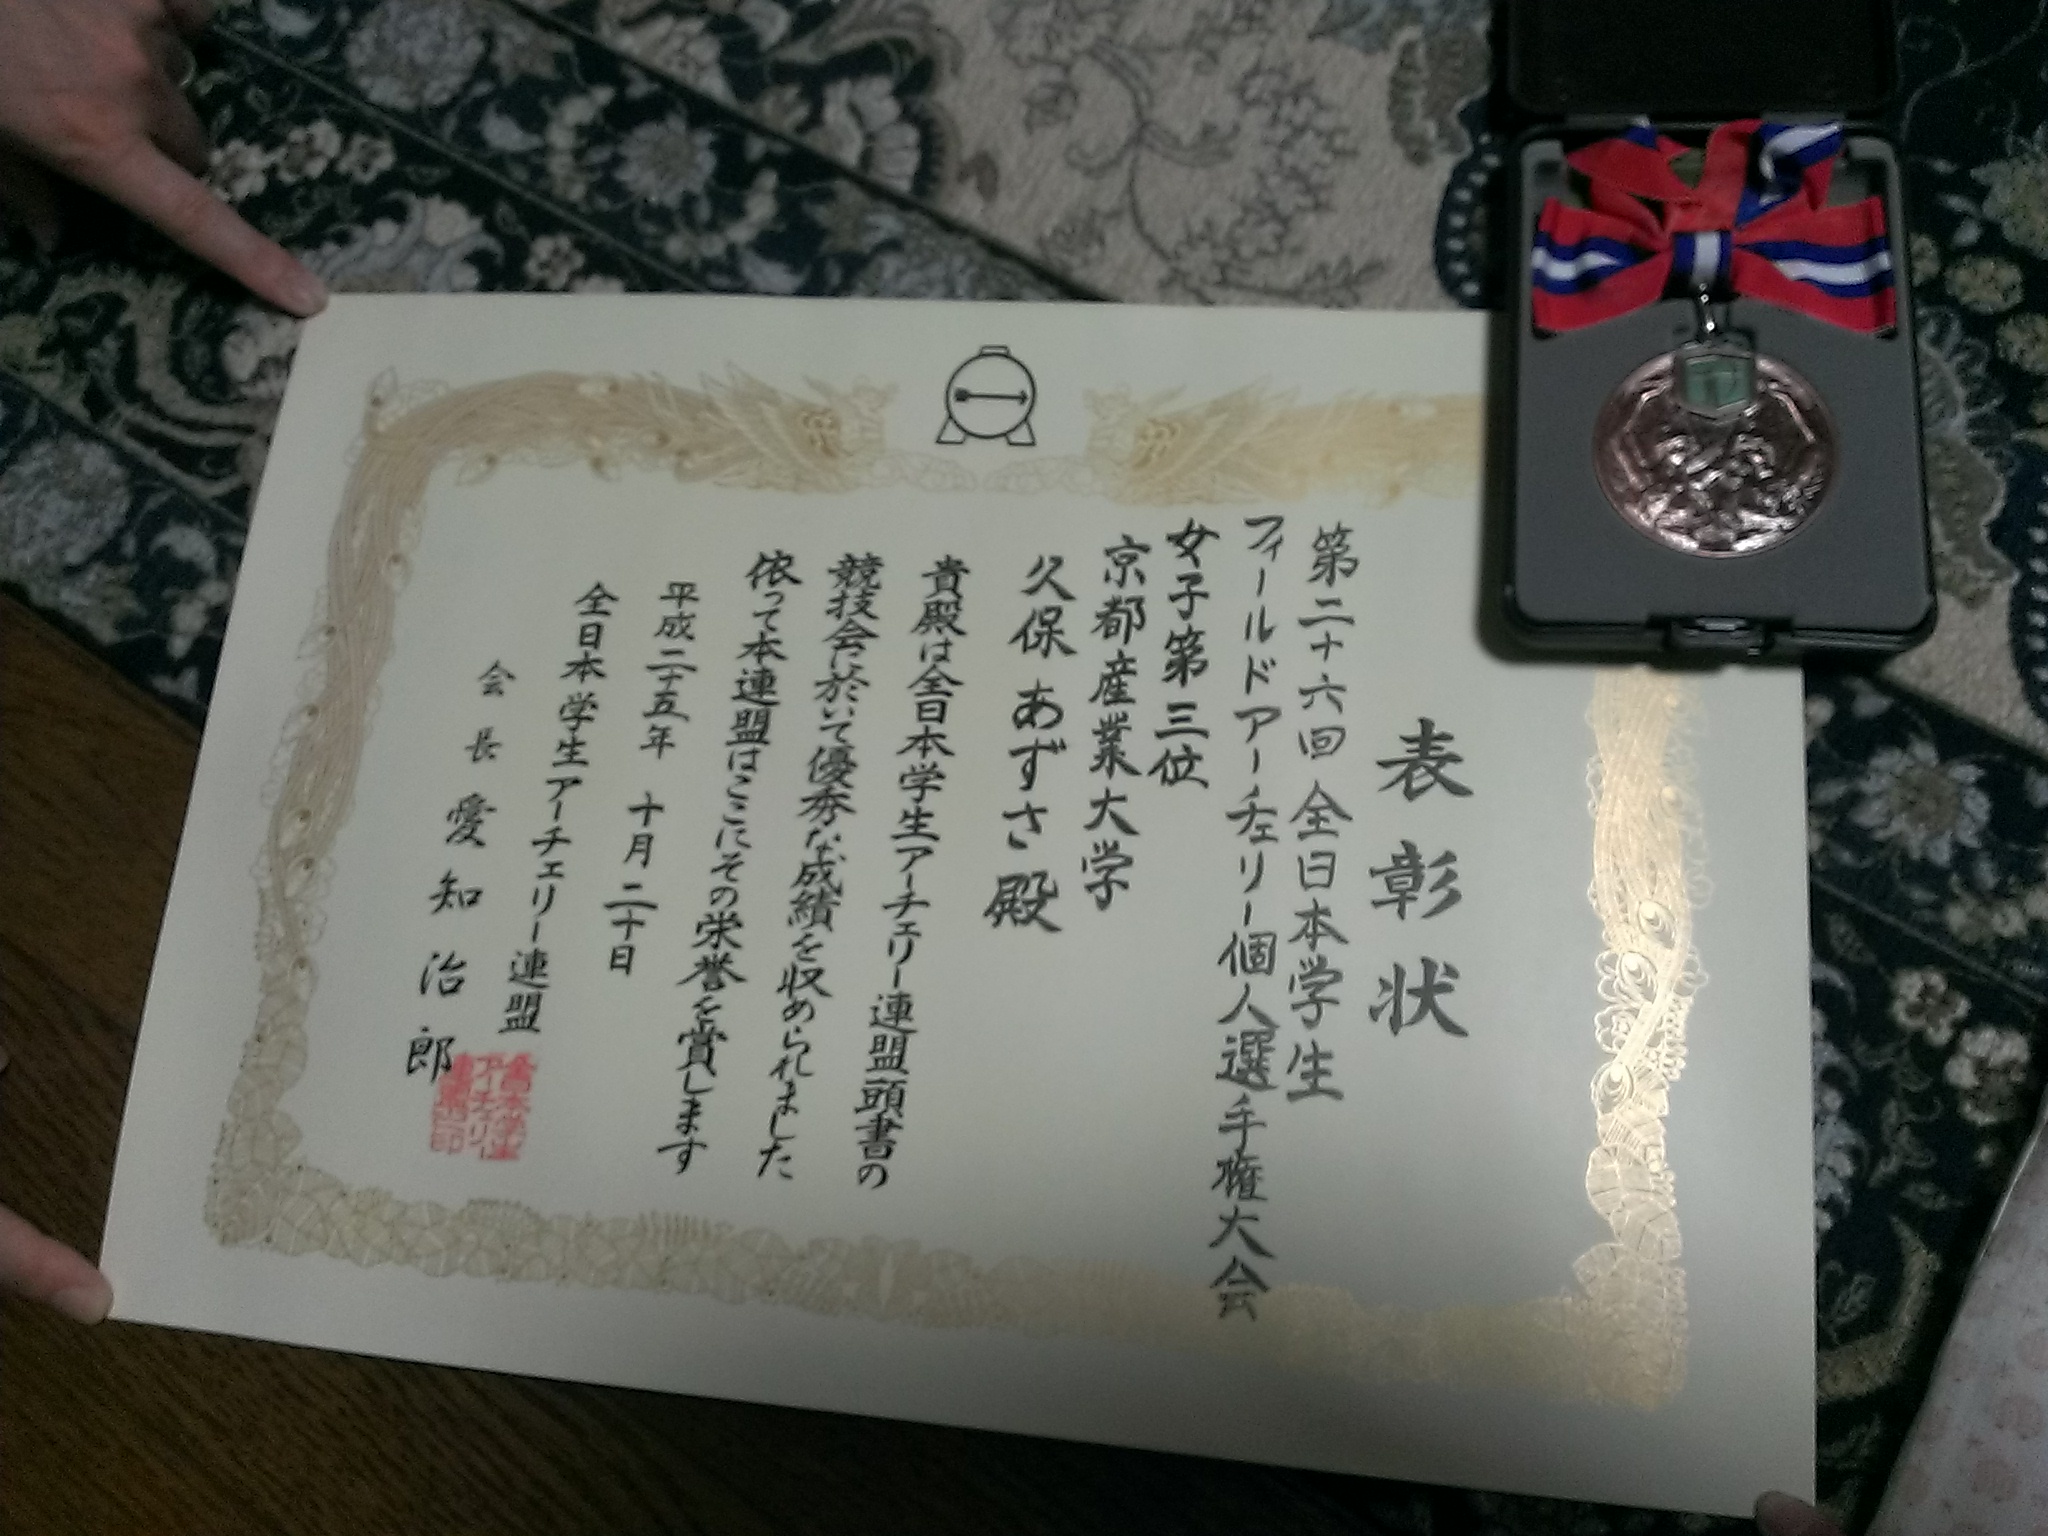 表彰状
第二十六回全日本学生
フィールドアーチェリー個人選手権大会
女子第三位
京都産業大学
久保あずさ殿
貴殿は全日本学生アーチェリー連盟頭書の
競技会に於いて優秀な成績を収められました
依って本連盟はここにその栄誉を賞します
平成二十五年 十月二十日
全日本学生アーチェリー連盟
会長 愛知治郎